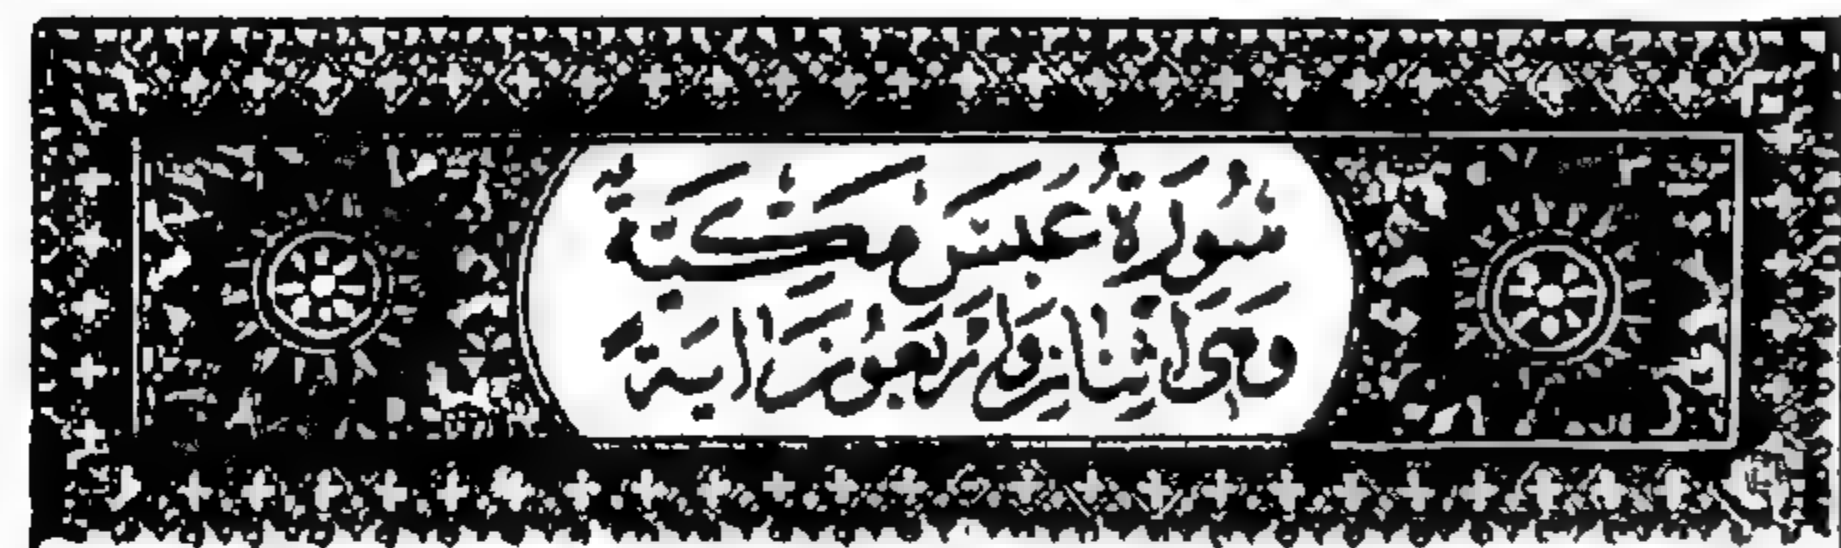 سُورَةُ عَبَسَ مَكِّيَّةٌ
وَهِيَ اثْنَانِ وَأَرْبَعُونَ اٰيَةً